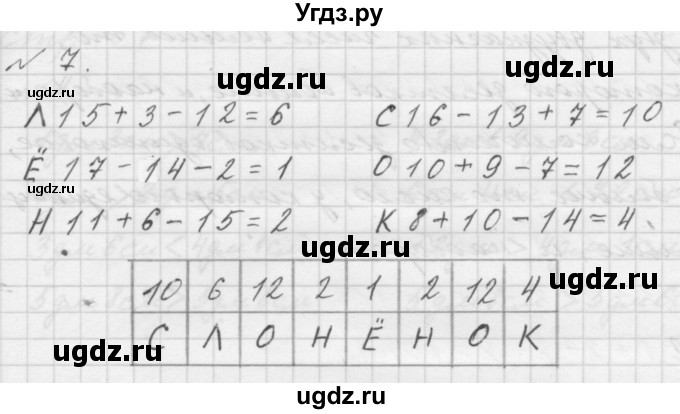 Угдз.ру
№ 7.
ugdz.ru ugdz.ru ugdz.ru
Л 15+3-12=6 С 16-13+7=10
ugdz.ru
Ё 17-14-2=1 О 10+9-7=12
ugdz.ru
Н 11+6-15=2 К 8+10-14=4.
ugdz.ru ugdz.ru
10 6 12 2 1 2 12 4
С Л О Н Ё Н О К
ugdz.ru ugdz.ru
ugdz.ru